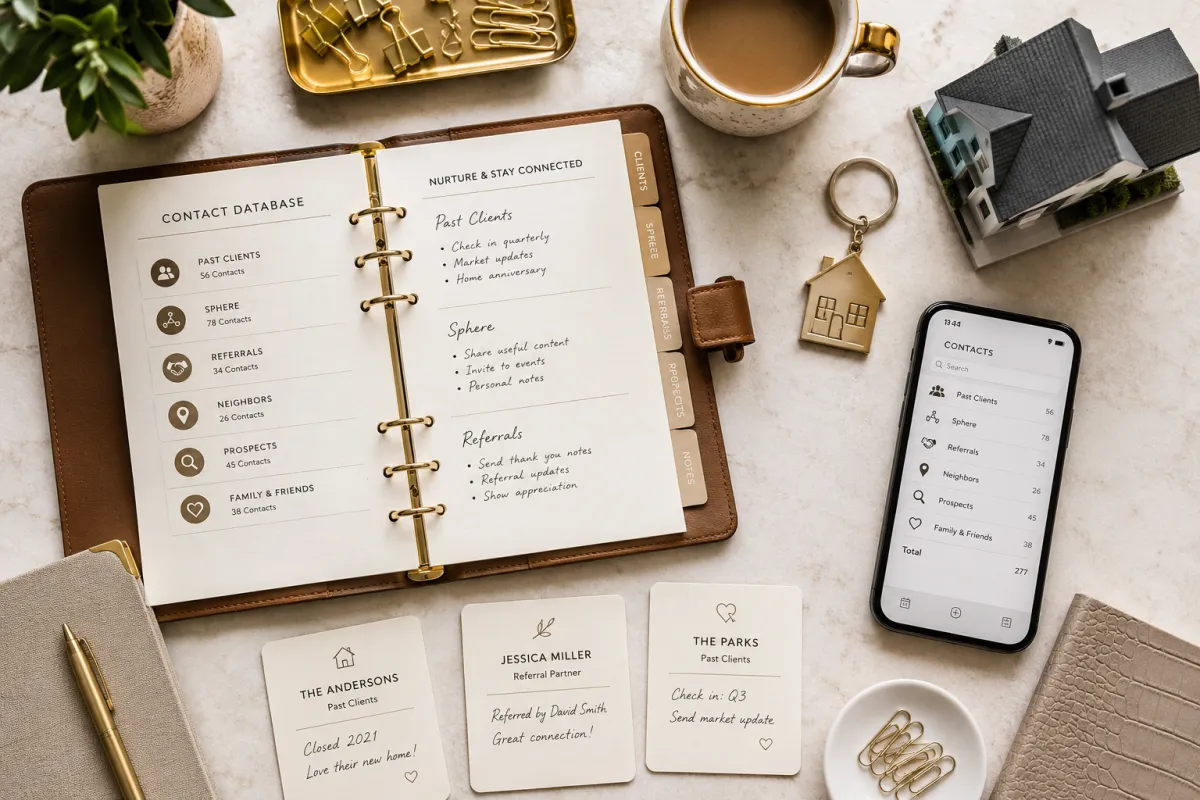 CONTACT DATABASE
PAST CLIENTS
56 Contacts
SPHERE
78 Contacts
REFERRALS
34 Contacts
NEIGHBORS
26 Contacts
PROSPECTS
45 Contacts
FAMILY & FRIENDS
38 Contacts
NURTURE & STAY CONNECTED
Past Clients
• Check in quarterly
• Market updates
• Home anniversary
Sphere
• Share useful content
• Invite to events
• Personal notes
Referrals
• Send thank you notes
• Referral updates
• Show appreciation
CLIENTS
NOTES
13 44
CONTACTS
Search
Past Clients 56
Sphere 78
Referrals 34
Neighbors 26
Prospects 45
Family & Friends 38
Total 277
THE ANDERSONS
Past Clients
Closed 2021
Love their new home!
JESSICA MILLER
Referral Partner
Referred by David Smith
Great connection!
THE PARKS
Past Clients
Check in: Q3
Send market update